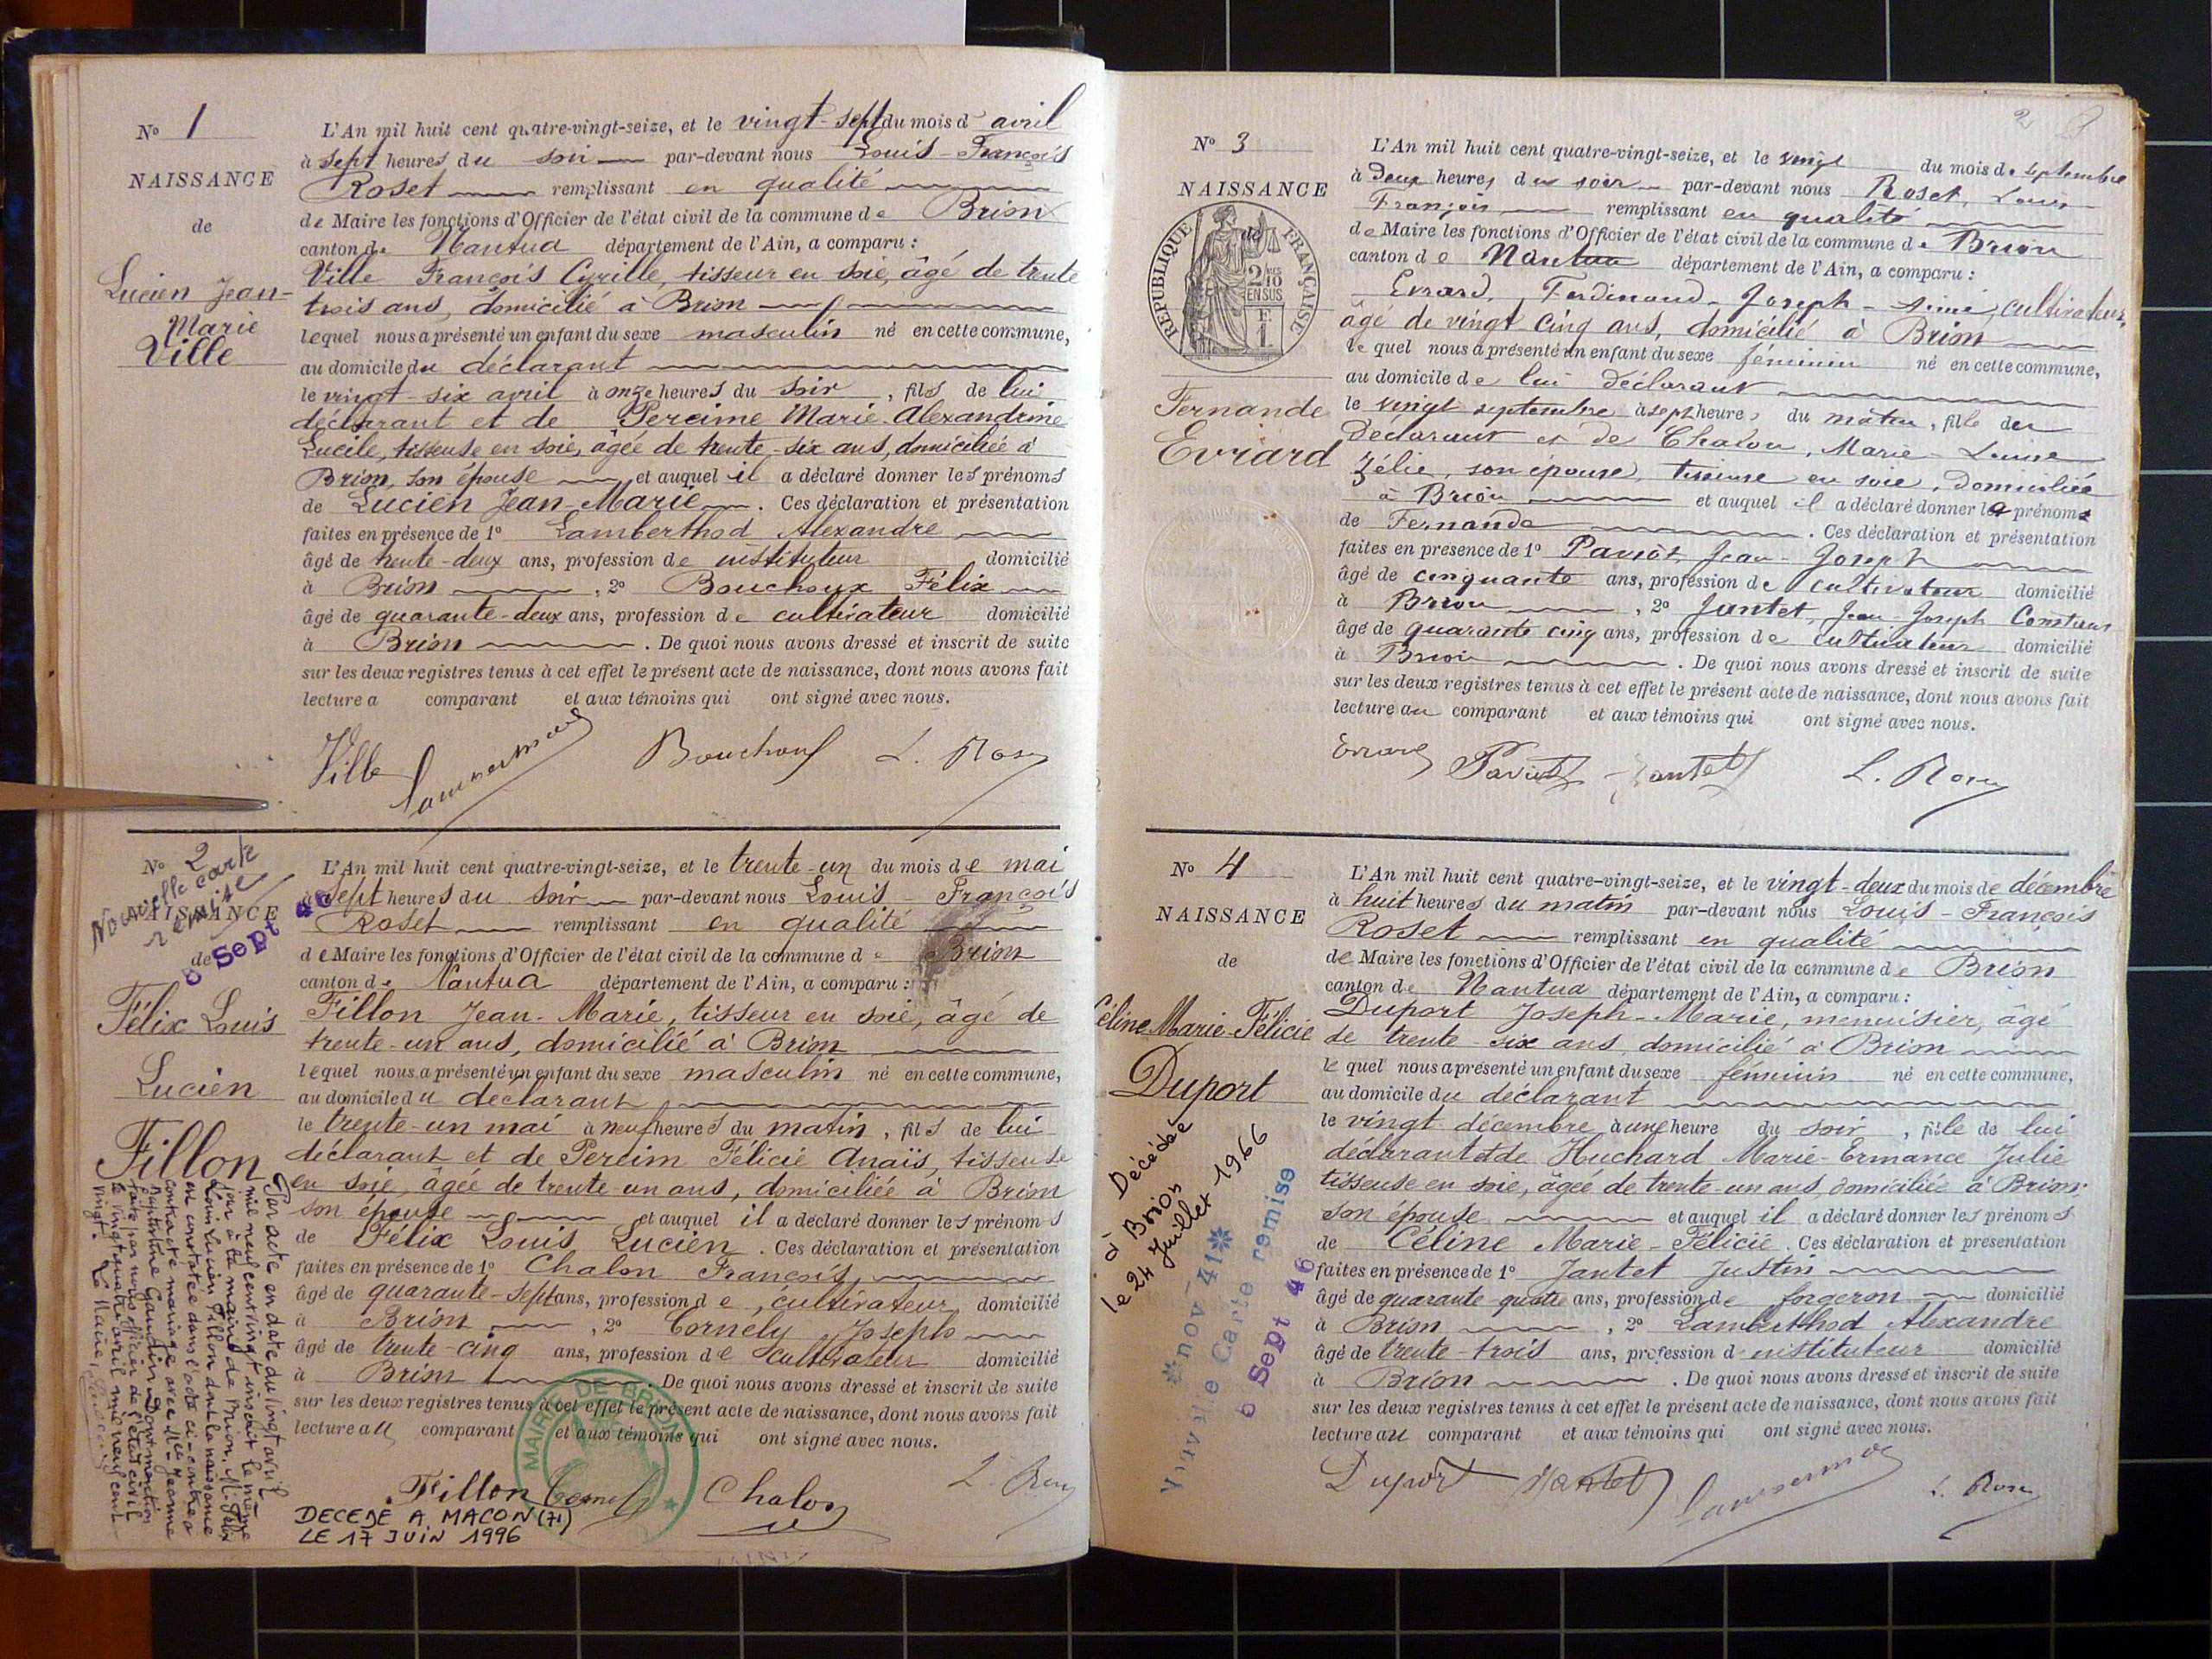 N° 1
NAISSANCE
de
Lucien Jean-
Marie
Ville
L'An mil huit cent quatre-vingt-seize, et le vingt-sept du mois d' avril
à sept heures du soir par-devant nous Louis-François
Roset remplissant en qualité
de Maire les fonctions d'Officier de l'état civil de la commune de Brion
canton de Nantua département de l'Ain, a comparu :
Ville François Cyrille, tisseur en soie, âgé de trente
trois ans, domicilié à Brion
lequel nous a présenté un enfant du sexe masculin né en cette commune,
au domicile du déclarant
le vingt-six avril à onze heures du soir, fils de lui
déclarant et de Marie-Alexandrine
Lucile, tisseuse en soie, âgée de trente-six ans, domiciliée à
Brion, son épouse et auquel il a déclaré donner les prénoms
de Lucien Jean-Marie. Ces déclaration et présentation
faites en présence de 1° Lamberthod Alexandre
âgé de trente-deux ans, profession de instituteur domicilié
à Brion, 2° Bouchoux Félix
âgé de quarante-deux ans, profession de cultivateur domicilié
à Brion. De quoi nous avons dressé et inscrit de suite
sur les deux registres tenus à cet effet le présent acte de naissance, dont nous avons fait
lecture a comparant et aux témoins qui ont signé avec nous.
Ville Bouchoux L. Roset
N° 2
Nouvelle carte
remise
NAISSANCE
de
6 Sept 46
Félix Louis
Lucien
Fillon
Par acte en date du vingt avril
mil neuf cent vingt inscrit le même
jour à la mairie de Brion, M. Félix
Louis Lucien Fillon dont la naissance
est constatée dans l'acte ci-contre a
contracté mariage avec Mlle Jeanne
Gaudin. Dont mention
faite par nous officier de l'état civil
le vingt quatre avril mil neuf cent
vingt. Le Maire,
L'An mil huit cent quatre-vingt-seize, et le trente-un du mois de mai
à sept heures du soir par-devant nous Louis-François
Roset remplissant en qualité
de Maire les fonctions d'Officier de l'état civil de la commune de Brion
canton de Nantua département de l'Ain, a comparu :
Fillon Jean-Marie, tisseur en soie, âgé de
trente-un ans, domicilié à Brion
lequel nous a présenté un enfant du sexe masculin né en cette commune,
au domicile du déclarant
le trente-un mai à neuf heures du matin, fils de lui
déclarant et de Félicie Anaïs, tisseuse
en soie, âgée de trente-un ans, domiciliée à Brion
son épouse et auquel il a déclaré donner les prénoms
de Félix Louis Lucien. Ces déclaration et présentation
faites en présence de 1° Chalon François,
âgé de quarante-sept ans, profession de cultivateur domicilié
à Brion, 2° Cornely Joseph
âgé de trente-cinq ans, profession de cultivateur domicilié
à Brion. De quoi nous avons dressé et inscrit de suite
sur les deux registres tenus à cet effet le présent acte de naissance, dont nous avons fait
lecture au comparant et aux témoins qui ont signé avec nous.
MAIRIE DE BRION
Fillon Cornely Chalon L. Roset
DECEDE A MACON (71)
LE 17 JUIN 1996
2
N° 3
NAISSANCE
de
REPUBLIQUE FRANÇAISE
2/10 EN SUS
Fernande
Evrard
L'An mil huit cent quatre-vingt-seize, et le vingt du mois de septembre
à deux heures du soir par-devant nous Roset, Louis
François remplissant en qualité
de Maire les fonctions d'Officier de l'état civil de la commune de Brion
canton de Nantua département de l'Ain, a comparu :
Evrard, Ferdinand-Joseph-Aimé, cultivateur,
âgé de vingt cinq ans, domicilié à Brion
lequel nous a présenté un enfant du sexe féminin né en cette commune,
au domicile de lui déclarant
le vingt septembre à sept heures du matin, fille du
déclarant et de Chalon, Marie-Louise
Zélie, son épouse, tisseuse en soie, domiciliée
à Brion et auquel il a déclaré donner le prénom
de Fernande. Ces déclaration et présentation
faites en présence de 1° Jean-Joseph
âgé de cinquante ans, profession de cultivateur domicilié
à Brion, 2° Jantet, Jean-Joseph Constant
âgé de quarante cinq ans, profession de cultivateur domicilié
à Brion. De quoi nous avons dressé et inscrit de suite
sur les deux registres tenus à cet effet le présent acte de naissance, dont nous avons fait
lecture au comparant et aux témoins qui ont signé avec nous.
Evrard Jantet L. Roset
N° 4
NAISSANCE
de
Céline Marie-Félicie
Duport
Décédée
à Brion
le 24 Juillet 1966
nov 41
Nouvelle Carte remise
6 Sept 46
L'An mil huit cent quatre-vingt-seize, et le vingt-deux du mois de décembre
à huit heures du matin par-devant nous Louis-François
Roset remplissant en qualité
de Maire les fonctions d'Officier de l'état civil de la commune de Brion
canton de Nantua département de l'Ain, a comparu :
Duport Joseph-Marie, menuisier, âgé
de trente-six ans domicilié à Brion
lequel nous a présenté un enfant du sexe féminin né en cette commune,
au domicile du déclarant
le vingt décembre à une heure du soir, fille de lui
déclarant et de Huchard Marie-Ermance Julie
tisseuse en soie, âgée de trente-un ans, domiciliée à Brion,
son épouse et auquel il a déclaré donner les prénoms
de Céline Marie-Félicie. Ces déclaration et présentation
faites en présence de 1° Jantet Justin
âgé de quarante-quatre ans, profession de forgeron domicilié
à Brion, 2° Lamberthod Alexandre
âgé de trente-trois ans, profession d' instituteur domicilié
à Brion. De quoi nous avons dressé et inscrit de suite
sur les deux registres tenus à cet effet le présent acte de naissance, dont nous avons fait
lecture au comparant et aux témoins qui ont signé avec nous.
Duport Jantet L. Roset